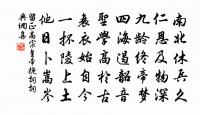 南北休兵久
仁恩及物深
九齡終夢
四海遏韶音
聖學高于古
衮衣始自今
一杯陵上土
他日卜嵩岑
留正高宗皇帝挽詞
典網